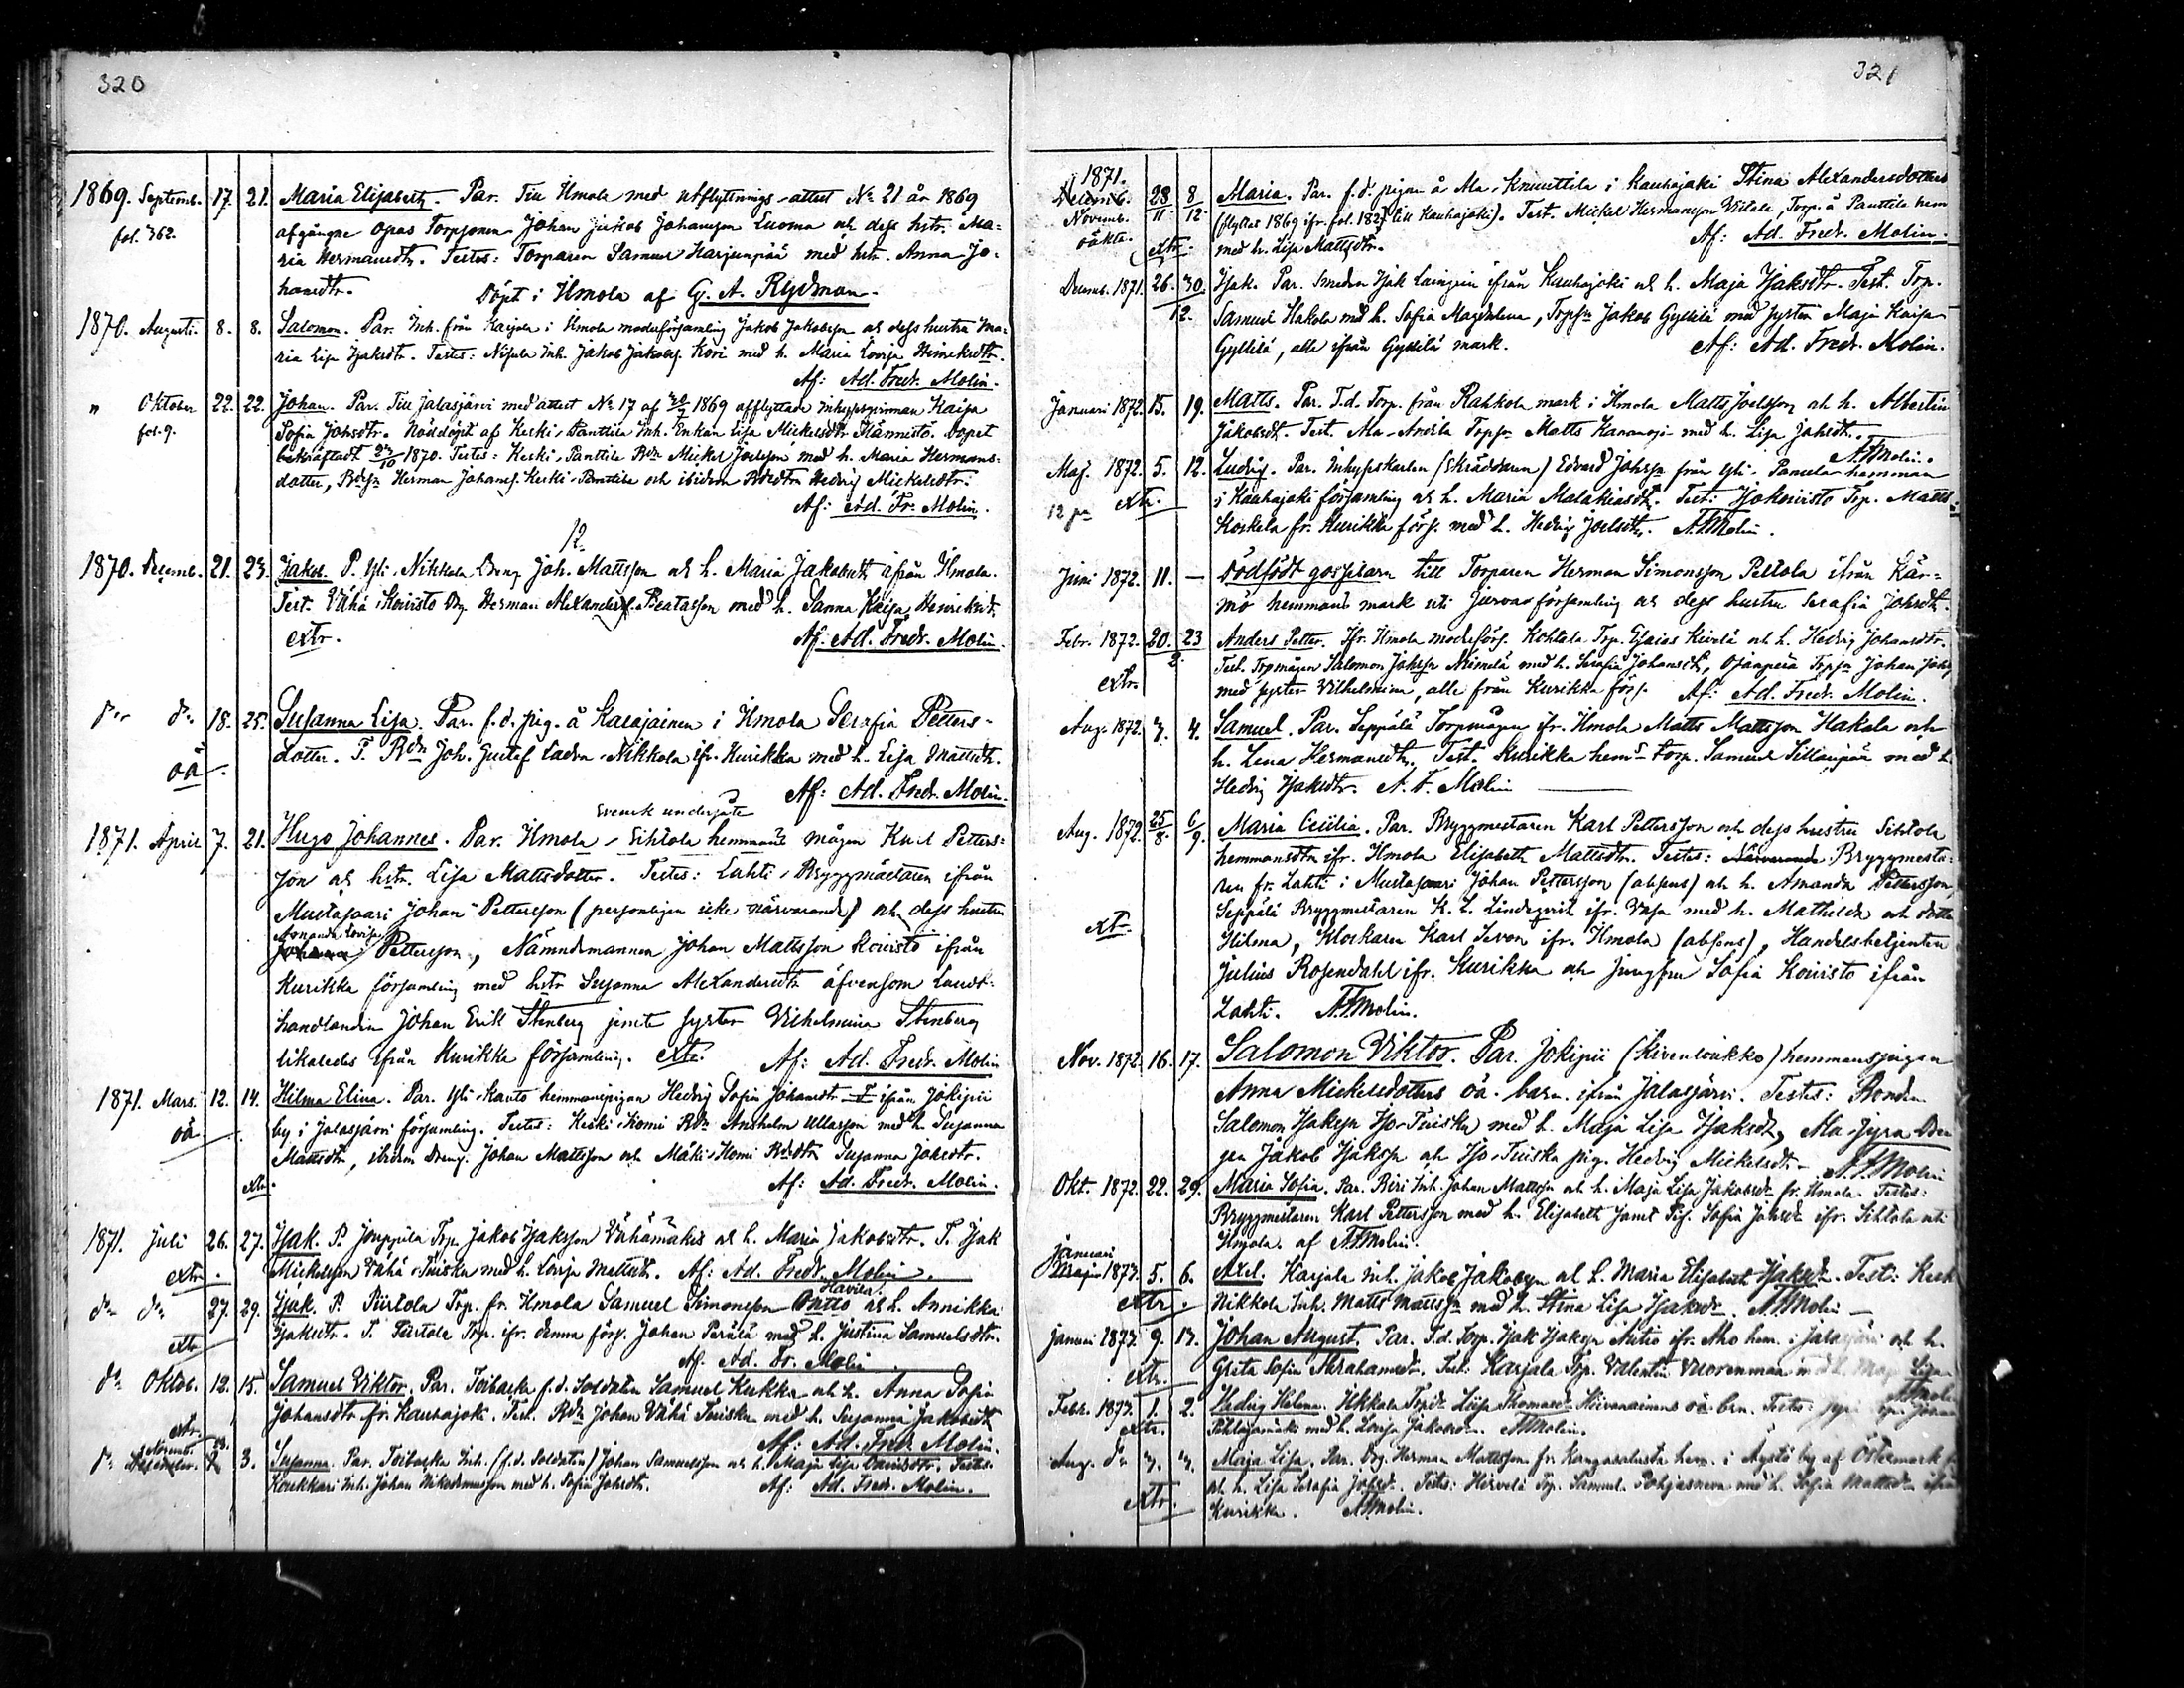 320
1869. Septemb. 17. 21. Maria Elisabeth. Par. Till Ilmola med utflyttnings-attest No 21 år 1869
fol. 362. afgångne Torpsonen Johan Jakob Johansson Luoma och dess hstr. Ma-
ria Hermansdtr. Testes: Torparen Samuel Harjunpää med hstr. Anna Jo-
hansdtr. Döpt i Ilmola af G. A. Rydman.
1870. Augusti. 8. 8. Salomon. Par. Inh. från Karjala i Ilmola moderförsamling Jakob Jakobsson och dess hustru Ma-
ria Lisa Isaksdtr. Testes: Inh. Jakob Jakobss. Kori med h. Maria Lovisa Henriksdtr.
Af: Ad. Fredr. Molin.
" Oktober 22. 22. Johan. Par. Till Jalasjärvi med attest No 17 af 1869 afflyttade Kaisa
fol. 9. Sofia Johsdtr. Nöddöpt af Keski-Panttila Inh. Enkan Lisa Mickelsdtr Männistö. Dopet
bekräftadt 1870. Testes: Keski-Panttila Bdn Mickel Joelsson med h. Maria Hermans-
dotter, Herman Johanss. Keski-Panttila och ibidem Hedvig Mickelsdtr.
Af: Ad. Fr. Molin.
12
1870. Decemb. 21. 23. Jakob. P. Yli-Nikkola Dreng Joh. Mattsson och h. Maria Jakobsdtr ifrån Ilmola.
Test. Vähä Koivisto Drg. Herman Alexanderss. Beatasson med h. Sanna Kaisa Henriksdt.
extr. Af: Ad. Fredr. Molin.
18. 25. Susanna Lisa. Par. f.d. pig. å Karajainen i Ilmola Serafia Petters-
oä. dotter. T. Bdn Joh. Gustaf Nikkola ifr. Kurikka med h. Lisa Mattsdt.
Af: Ad. Fredr. Molin.
Svensk undersåte
1871. April 7. 21. Hugo Johannes. Par. Ilmola, Sihtola hemmans mågen Karl Petters-
son och hstr. Lisa Mattsdotter. Testes: Lahti, Bryggmästaren ifrån
Mustasaari Johan Pettersson (personligen icke närvarande) och dess hustru
Amanda Lovisa
Johanna Pettersson, Nämndemannen Johan Mattsson Koivisto ifrån
Kurikka församling med hstr Susanna Alexandersdtr äfvensom Landt-
handlanden Johan Erik Stenberg jemte syster Vilhelmina Stenberg
likaledes ifrån Kurikka församling. extr. Af: Ad. Fredr. Molin
1871. Mars. 12. 14. Hilma Elina. Par. Yli-Kauto hemmanspigan Hedvig Sofia Johansdtr ifrån Jokipii
oä by i Jalasjärvi församling. Testes: Keski-Komi Bdn Anshelm Ullasson med h. Susanna
Mattsdtr, ibidem Dreng. Johan Mattsson och Mäki-Komi Susanna Johsdtr.
extr. Af: Ad. Fredr. Molin.
1871. Juli 26. 27. Isak. P. Jouppila Trp. Jakob Isaksson Vähämäki och h. Maria Jakobsdtr. T. Isak
extr. Mickelsson Vähä-Tuisku med h. Lovisa Mattsdt. Af: Ad. Fredr. Molin.
Havila.
27. 29. Isak. P. Piirtola Trp. fr. Ilmola Samuel Simonsson Ontto och h. Annikka
extr. Isaksdtr. T. Piirtola Trp. ifr. denna förs. Johan Perälä med h. Justina Samuelsdtr.
Af. Ad. Fr. Molin
Oktob. 12. 15. Samuel Viktor. Par. Toibacka f.d. Soldaten Samuel Kukka och h. Anna Sofia
extr. Johansdtr fr. Kauhajoki. Test. Bdn Johan Vähä Tuisku med h. Susanna Jakobsdt.
Af: Ad. Fredr. Molin.
Novemb. 3. Susanna. Par. Toibacka Inh. (f.d. Soldaten) Johan Samuelsson och h. Maja Lisa Davidsdtr. Testes:
Koukkari Inh. Johan Nikodemusson med h. Sofia Johsdtr. Af: Ad. Fredr. Molin.
321
1871.
Decemb. 28 8 Maria. Par. f.d. pigan å Ala-Knuuttila i Kauhajoki Stina Alexandersdotters
Novemb. 11. 12. (flyttat 1869 ifr. fol. 182 till Kauhajoki). Test. Mickel Hermansson Uitala, Torp. å Panttila hem
oäkta. extr. med h. Lisa Mattsdtr. Af: Ad. Fredr. Molin.
Decemb. 1871. 26. 30. Isak. Par. Smeden Isak ifrån Kauhajoki och h. Maja Isaksdtr. Test. Trp.
12. Samuel Hakola med h. Sofia Magdalena, Jakob Gyllilä med syster Maja Kaisa
Gyllilä, alla ifrån Gyllilä mark. Af: Ad. Fredr. Molin.
Januari 1872. 15. 19. Matts. Par. F.d. Torp. från Rahkola mark i Ilmola Matts Joelsson och h. Albertin
Jakobsdt. Test. Ala-Anttila Matts med h. Lisa Johsdtr.
A F Molin.
Maj. 1872. 5. 12. Ludvig. Par. Inhyskarlen (Skräddaren) Edvard Johss. från Yli-Panula hemman
12 extr. i Kauhajoki församling och h. Maria Malakiasdt. Test: Trp. Matts
Koskela fr. Kurikka förs. med h. Hedvig Joelsdtr. A F Molin.
Juni 1872. 11. — Dödfödt gossebarn till Torparen Herman Simonsson Peltola ifrån Kär-
mö hemmans mark uti Jurva församling och dess hustru Serafia Johsdtr.
Febr. 1872. 20. 23 Anders Petter. Ifr. Ilmola moderförs. Kohtala Trp. Esaias Kivelä och h. Hedvig Johansdtr.
2. Test. Trpmågen Salomon Johss. Niemelä med h. Serafia Johansdt, Johan Johs
extr. med syster Vilhelmina, alla från Kurikka förs. Af: Ad. Fredr. Molin.
Aug. 1872. 3. 4. Samuel. Par. Seppälä Torpmågen ifr. Ilmola Matts Mattsson Hakala och
h. Lena Hermansdtr. Test. Kurikka hems torp. Samuel Sillanpää med h.
Hedvig Isaksdtr. A. F. Molin
Aug. 1872. 25 6 Maria Cecilia. Par. Bryggmestaren Karl Pettersson och dess hustru Sihtola
8. 9. hemmansdtr ifr. Ilmola Elisabeth Mattsdtr. Testes: Närvarande Bryggmesta-
ren fr. Lahti i Mustasaari Johan Pettersson (absens) och h. Amanda Pettersson,
Seppälä Bryggmestaren K. L. Lindeqvist ifr. Vasa med h. Mathilda och dotter
extr. Hilma, Klockaren Karl Levon ifr. Ilmola (absens), Handelsbetjenten
Julius Rosendahl ifr. Kurikka och jungfrun Sofia Koivisto ifrån
Lahti. A. F. Molin.
Nov. 1872. 16. 17. Salomon Viktor. Par. Jokipii (Kivenloukko) hemmanspigan
Anna Mickelsdotters oä. barn ifrån Jalasjärvi. Testes: Bonden
Salomon Isakss. Iso-Tuisku med h. Maja Lisa Isaksdt, Ala-Jyrä Dren
gen Jakob Isakss. och Iso-Tuisku pig. Hedvig Mickelsdt. A. F. Molin
Okt. 1872. 22. 29. Maria Sofia. Par. Inh. Johan Mattss. och h. Maja Lisa Jakobsdt fr. Ilmola. Testes:
Bryggmestaren Karl Pettersson med h. Elisabeth samt Pig. Sofia Johsdt ifr. Sihtola uti
Ilmola. af A F Molin.
Januari
Maj 1873. 5. 6. Axel. Karjala Inh. Jakob Jakobss. och h. Maria Elisabeth Isaksdt. Test: Kesk
extr. Nikkola Inh. Matts Mattss. med h. Stina Lisa Isaksdt. A F Molin
Januari 1873. 9. 13. Johan August. Par. F.d. Torp. Isak Isakss. Autio ifr. Aho hem. i Jalasjärvi och h.
extr. Greta Sofia Abrahamsdt. Test: Karjala Trp. Valentin Vuorenmaa med h. Maja Lisa
A F Molin
Febr. 1873. 1. 2. Hedvig Helena. Ilkkala Lisa Thomasdt oä brn. Testes: Johan
extr. Pihlajamäki med h. Lovisa Jakobsdt. A F Molin.
Aug. 3. 3. Maja Lisa. Par. Drg. Herman Mattsson fr. Kangasalusta hem. i Äystö by af Östermark
och h. Lisa Serafia Johsdt. Testes: Hirvelä Trp. Samuel Pohjasneva med h. Sofia Mattsdt ifrån
extr. Kurikka. A F Molin.